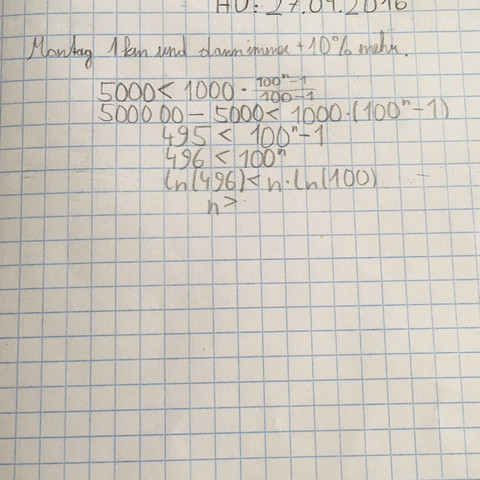 HÜ: 27.04.2016
Montag 1km und dann immer + 10% mehr.
5000 < 1000 · \frac{100^n - 1}{100 - 1}
500000 - 5000 < 1000 · (100^n - 1)
495 < 100^n - 1
496 < 100^n
ln(496) < n · ln(100)
n >